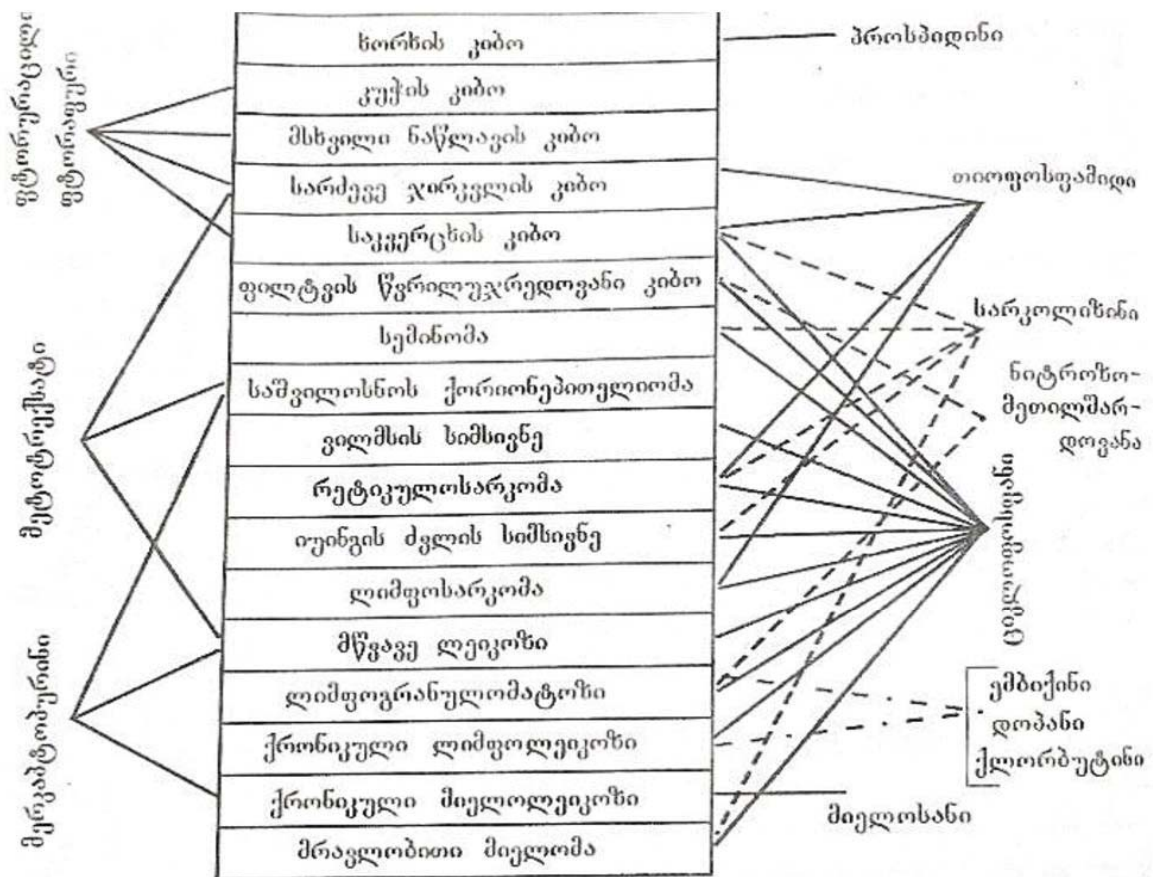 ფტორურაცილი
ფტორაფური
მეტოტრექსატი
მერკაპტოპურინი
ხორხის კიბო
კუჭის კიბო
მსხვილი ნაწლავის კიბო
სარძევე ჯირკვლის კიბო
საკვერცხის კიბო
ფილტვის წვრილუჯრედოვანი კიბო
სემინომა
საშვილოსნოს ქორიონეპითელიომა
ვილმსის სიმსივნე
რეტიკულოსარკომა
იუინგის ძვლის სიმსივნე
ლიმფოსარკომა
მწვავე ლეიკოზი
ლიმფოგრანულომატოზი
ქრონიკული ლიმფოლეიკოზი
ქრონიკული მიელოლეიკოზი
მრავლობითი მიელომა
პროსპიდინი
თიოფოსფამიდი
სარკოლიზინი
ნიტროზო-
მეთილშარ-
დოვანა
ციკლოფოსფანი
ემბიქინი
დოპანი
ქლორბუტინი
მიელოსანი